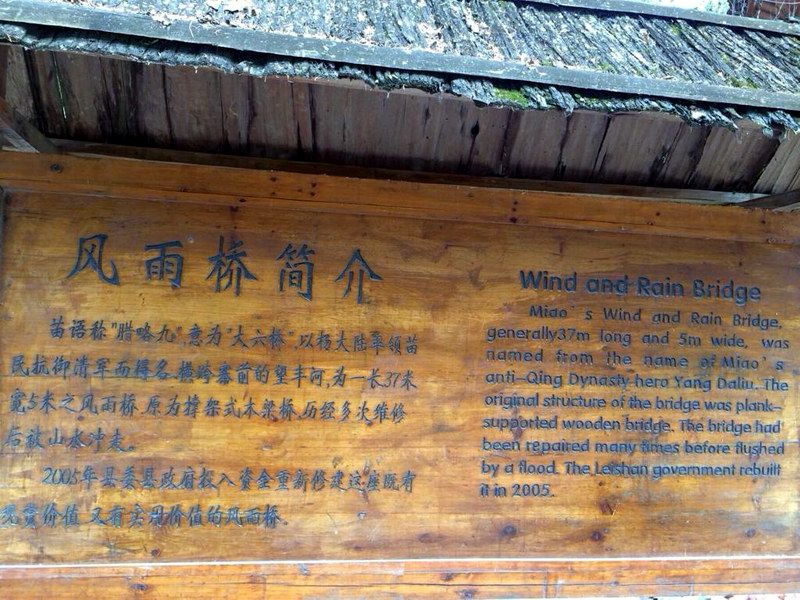 风雨桥简介
苗语称"腊咯九",意为"大六桥",以杨大陆率领苗
民抗御清军而得名,横跨寨前的望丰河,为一长37米
宽5米之风雨桥,原为撑架式木梁桥,历经多次维修
后被山水冲走。
2005年县委县政府投入资金重新修建这座既有
观赏价值,又有实用价值的风雨桥。
Wind and Rain Bridge
Miao's Wind and Rain Bridge,
generally37m long and 5m wide, was
named from the name of Miao's
anti-Qing Dynasty hero Yang Daliu. The
original structure of the bridge was plank-
supported wooden bridge. The bridge had
been repaired many times before flushed
by a flood. The Leishan government rebuilt
it in 2005.